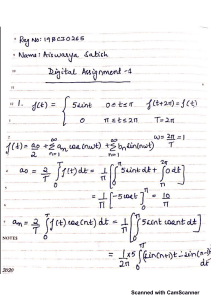 Reg No: 19BCI0265
Name: Aiswarya Satish
Digital Assignment -1
1. f(t) = { 5sint 0≤t≤π f(t+2π)=f(t)
0 π≤t≤2π T=2π
ω=2π/T=1
f(t) = a0/2 + ∞Σn=1 an cos(nωt) + ∞Σn=1 bn sin(nωt)
a0 = 2/T ∫0T f(t) dt = 1/π [∫0π 5sint dt + ∫π2π 0 dt]
= 1/π [-5cost]0π = 10/π
an = 2/T ∫0T f(t) cos(nt) dt = 1/π [∫0π 5sint cosnt dt]
= 1×5/2π ∫0π (sin(n+1)t - sin(n-1)t) dt
NOTES
2020
Scanned with CamScanner